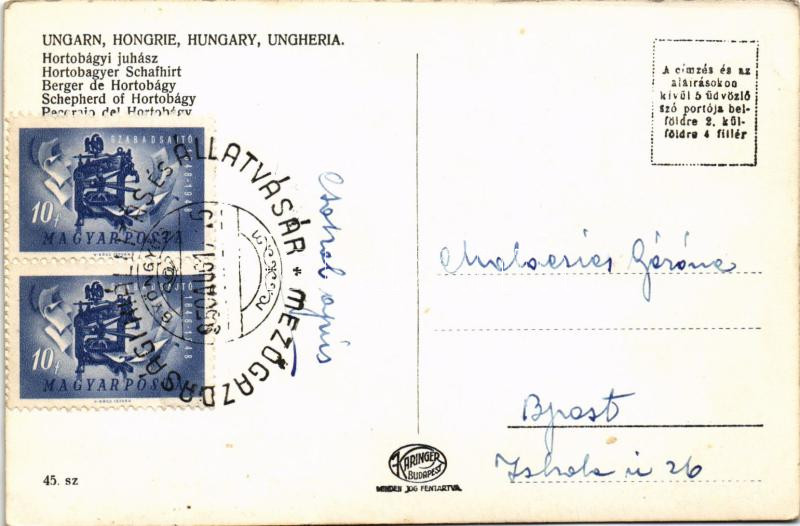 UNGARN, HONGRIE, HUNGARY, UNGHERIA.
Hortobágyi juhász
Hortobagyer Schafhirt
Berger de Hortobágy
Schepherd of Hortobágy
Pecoraio del Hortobágy
A címzés és az
aláírásokon
kívül 5 üdvözlő
szó portója bel-
földre 2, kül-
földre 4 fillér
SZABADSAJTÓ 1848-1948
10f
MAGYAR POSTA
SZABADSAJTÓ 1848-1948
10f
MAGYAR POSTA
ÁLLATVÁSÁR * MEZŐGAZDASÁGI
Bpest
Iskola u 26
KARINGER
BUDAPEST
MINDEN JOG FENTARTVA.
45. sz